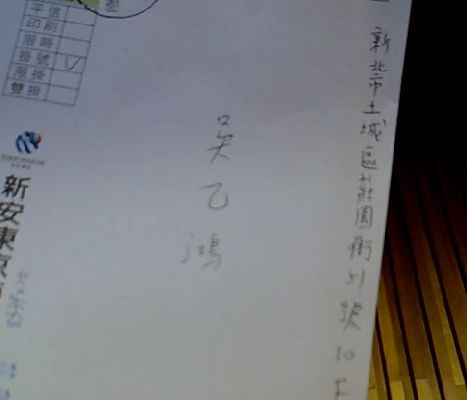 新北市土城區莊園街51號10F
吳乙鴻
平信
印刷
限時
掛號 V
限掛
雙掛
新安東京